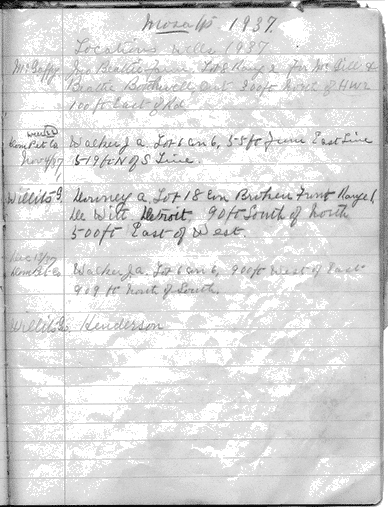 Mosa Tp 1937.
Locations Wells 1937
McGaffy Jno Beattie Farm Lot 8 Range 2 for McDill &
Beattie Bothwell Ont 200 ft North of HW2
100 ft East of Rd
Dom Pet Co Walker J a. Lot 6 Con 6, 55 ft from East Line
Nov 4/37 519 ft N of S Line.
Willits G. Downey a. Lot 18 Con Broken Front Range 1,
De Witt Detroit 90 ft South of North
500 ft East of West.
Dom Pet Co Walker J a. Lot 6 Con 6, 900 ft West of East
909 ft North of South.
Willits G. Henderson